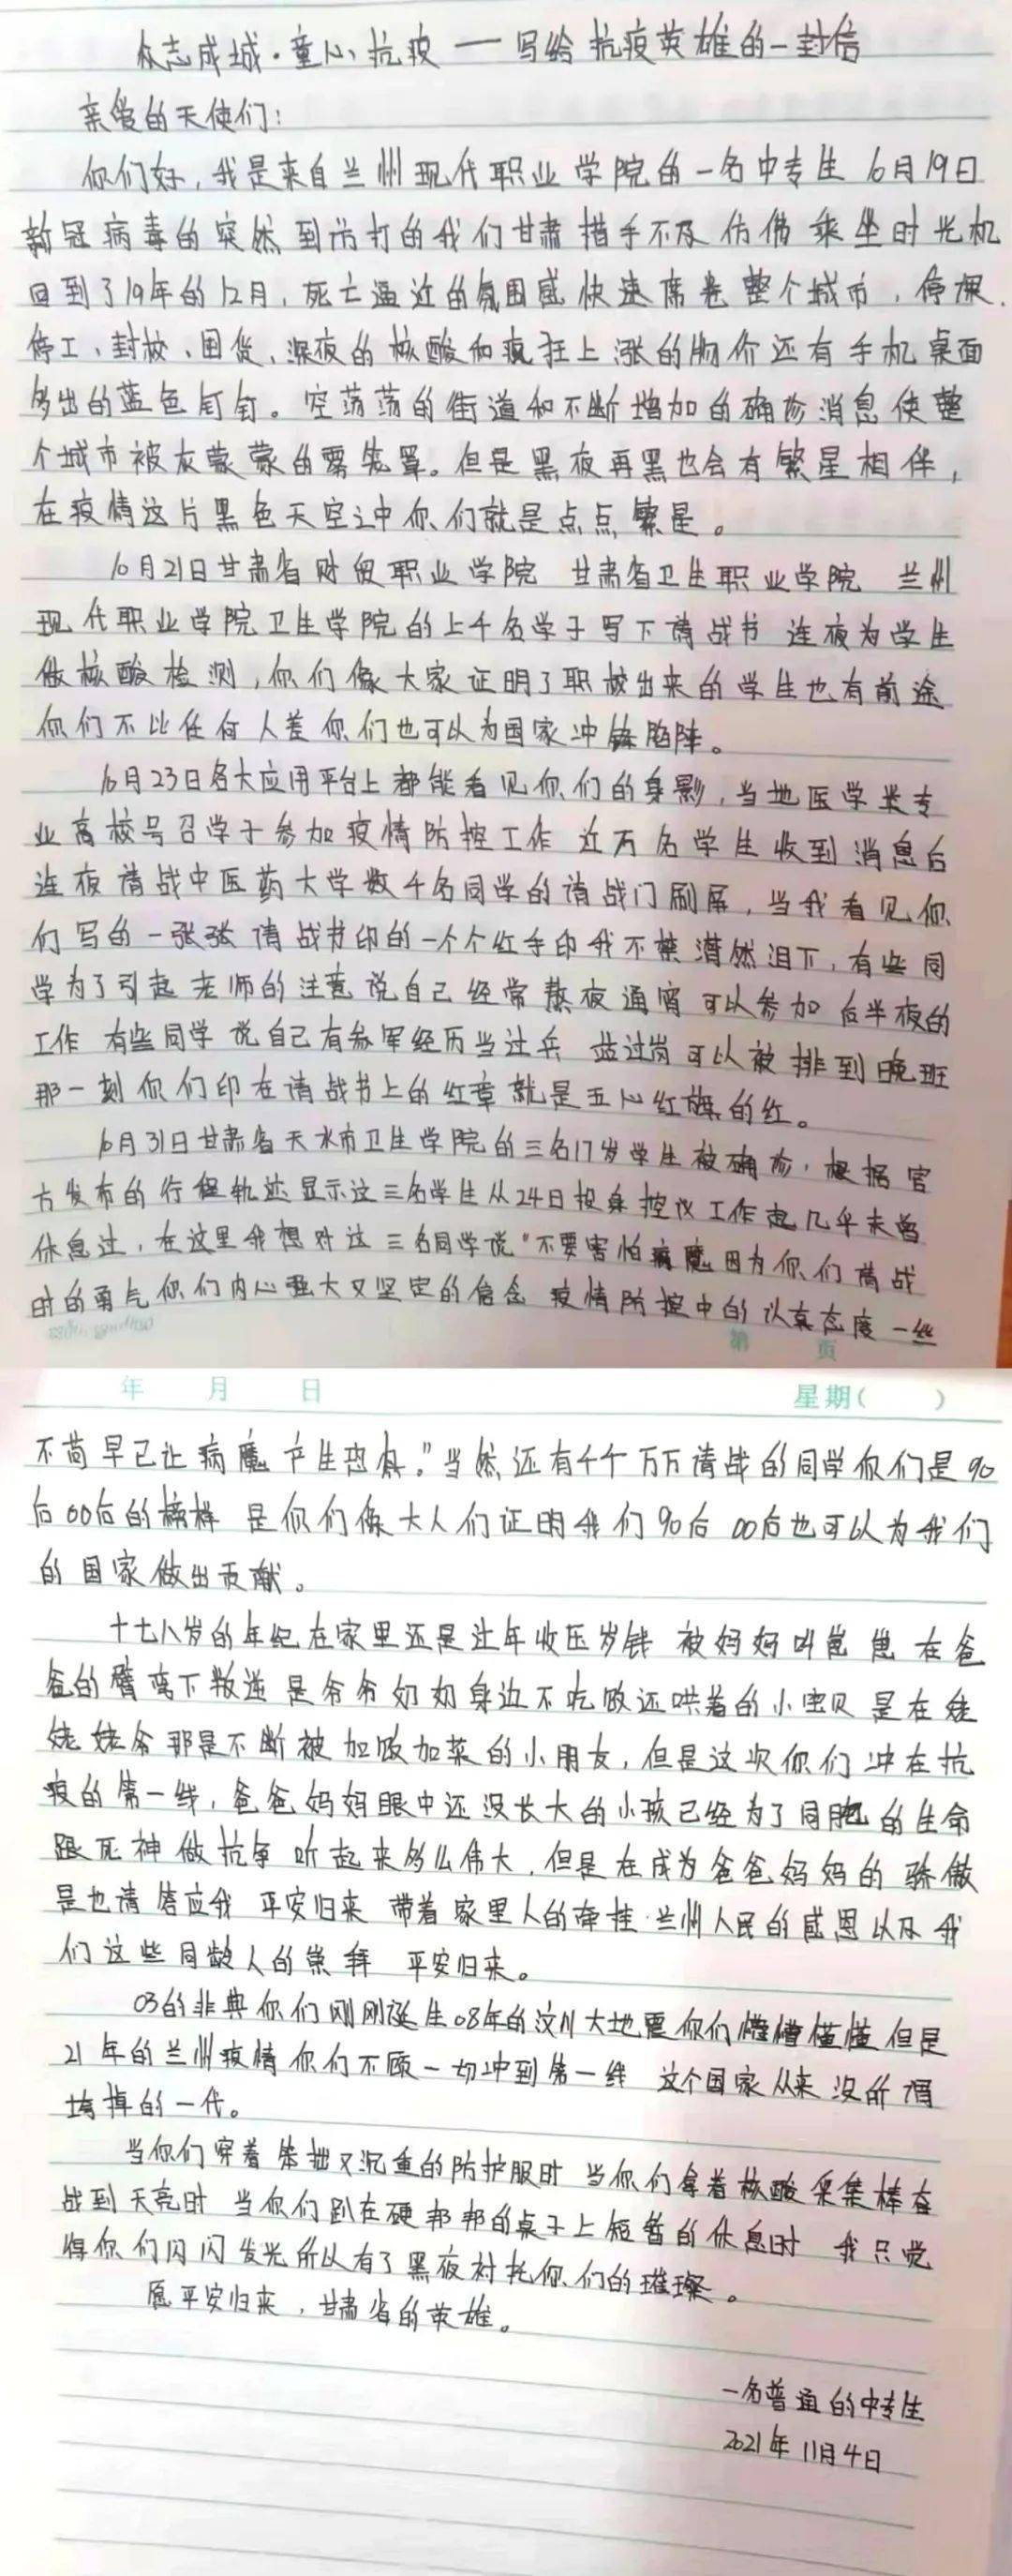 众志成城·童心抗疫 — 写给抗疫英雄的一封信
亲爱的天使们：
你们好，我是来自兰州现代职业学院的一名中专生 10月19日
新冠病毒的突然到访打的我们甘肃措手不及仿佛乘坐时光机
回到了19年的12月，死亡逼近的氛围感快速席卷整个城市，停课、
停工、封校、囤货、深夜的核酸和疯狂上涨的物价还有手机桌面
多出的蓝色钉钉。空荡荡的街道和不断增加的确诊消息使整
个城市被灰蒙蒙的雾笼罩。但是黑夜再黑也会有繁星相伴，
在疫情这片黑色天空之中你们就是点点繁星。
10月21日甘肃省财贸职业学院 甘肃省卫生职业学院 兰州
现代职业学院卫生学院的上千名学子写下请战书 连夜为学生
做核酸检测，你们像大家证明了职校出来的学生也有前途
你们不比任何人差你们也可以为国家冲锋陷阵。
10月23日各大应用平台上都能看见你们的身影，当地医学类专
业高校号召学子参加疫情防控工作 近万名学生收到消息后
连夜请战中医药大学数千名同学的请战门刷屏，当我看见你
们写的一张张请战书印的一个个红手印我不禁潸然泪下，有些同
学为了引起老师的注意说自己经常熬夜通宵可以参加后半夜的
工作 有些同学说自己有参军经历当过兵 站过岗可以被排到晚班
那一刻你们印在请战书上的红章就是五心红旗的红。
10月31日甘肃省天水市卫生学院的三名17岁学生被确诊，根据官
方发布的行程轨迹显示这三名学生从24日投身控仪工作起几乎未曾
休息过，在这里我想对这三名同学说“不要害怕病魔因为你们请战
时的勇气你们内心强大又坚定的信念 疫情防控中的认真态度一丝
第 页
年 月 日 星期( )
不苟早已让病魔产生恐惧。”当然还有千千万万请战的同学你们是90
后00后的榜样 是你们像大人们证明我们90后 00后也可以为我们
的国家做出贡献。
十七八岁的年纪在家里还是过年收压岁钱 被妈妈叫崽崽 在爸
爸的臂弯下叛逆 是爷爷奶奶身边不吃饭还哄着的小宝贝 是在姥
姥姥爷那是不断被加饭加菜的小朋友，但是这次你们冲在抗
疫的第一线，爸爸妈妈眼中还没长大的小孩已经为了同胞的生命
跟死神做抗争 听起来多么伟大，但是在成为爸爸妈妈的骄傲
是也请答应我 平安归来 带着家里人的牵挂·兰州人民的感恩以及我
们这些同龄人的崇拜 平安归来。
03的非典你们刚刚诞生08年的汶川大地震你们懵懵懂懂 但是
21年的兰州疫情你们不顾一切冲到第一线 这个国家从来没所谓
垮掉的一代。
当你们穿着笨拙又沉重的防护服时 当你们拿着核酸采集棒奋
战到天亮时 当你们趴在硬邦邦的桌子上短暂的休息时 我只觉
得你们闪闪发光所以有了黑夜衬托你们的璀璨。
愿平安归来，甘肃省的英雄。
一名普通的中专生
2021年11月4日